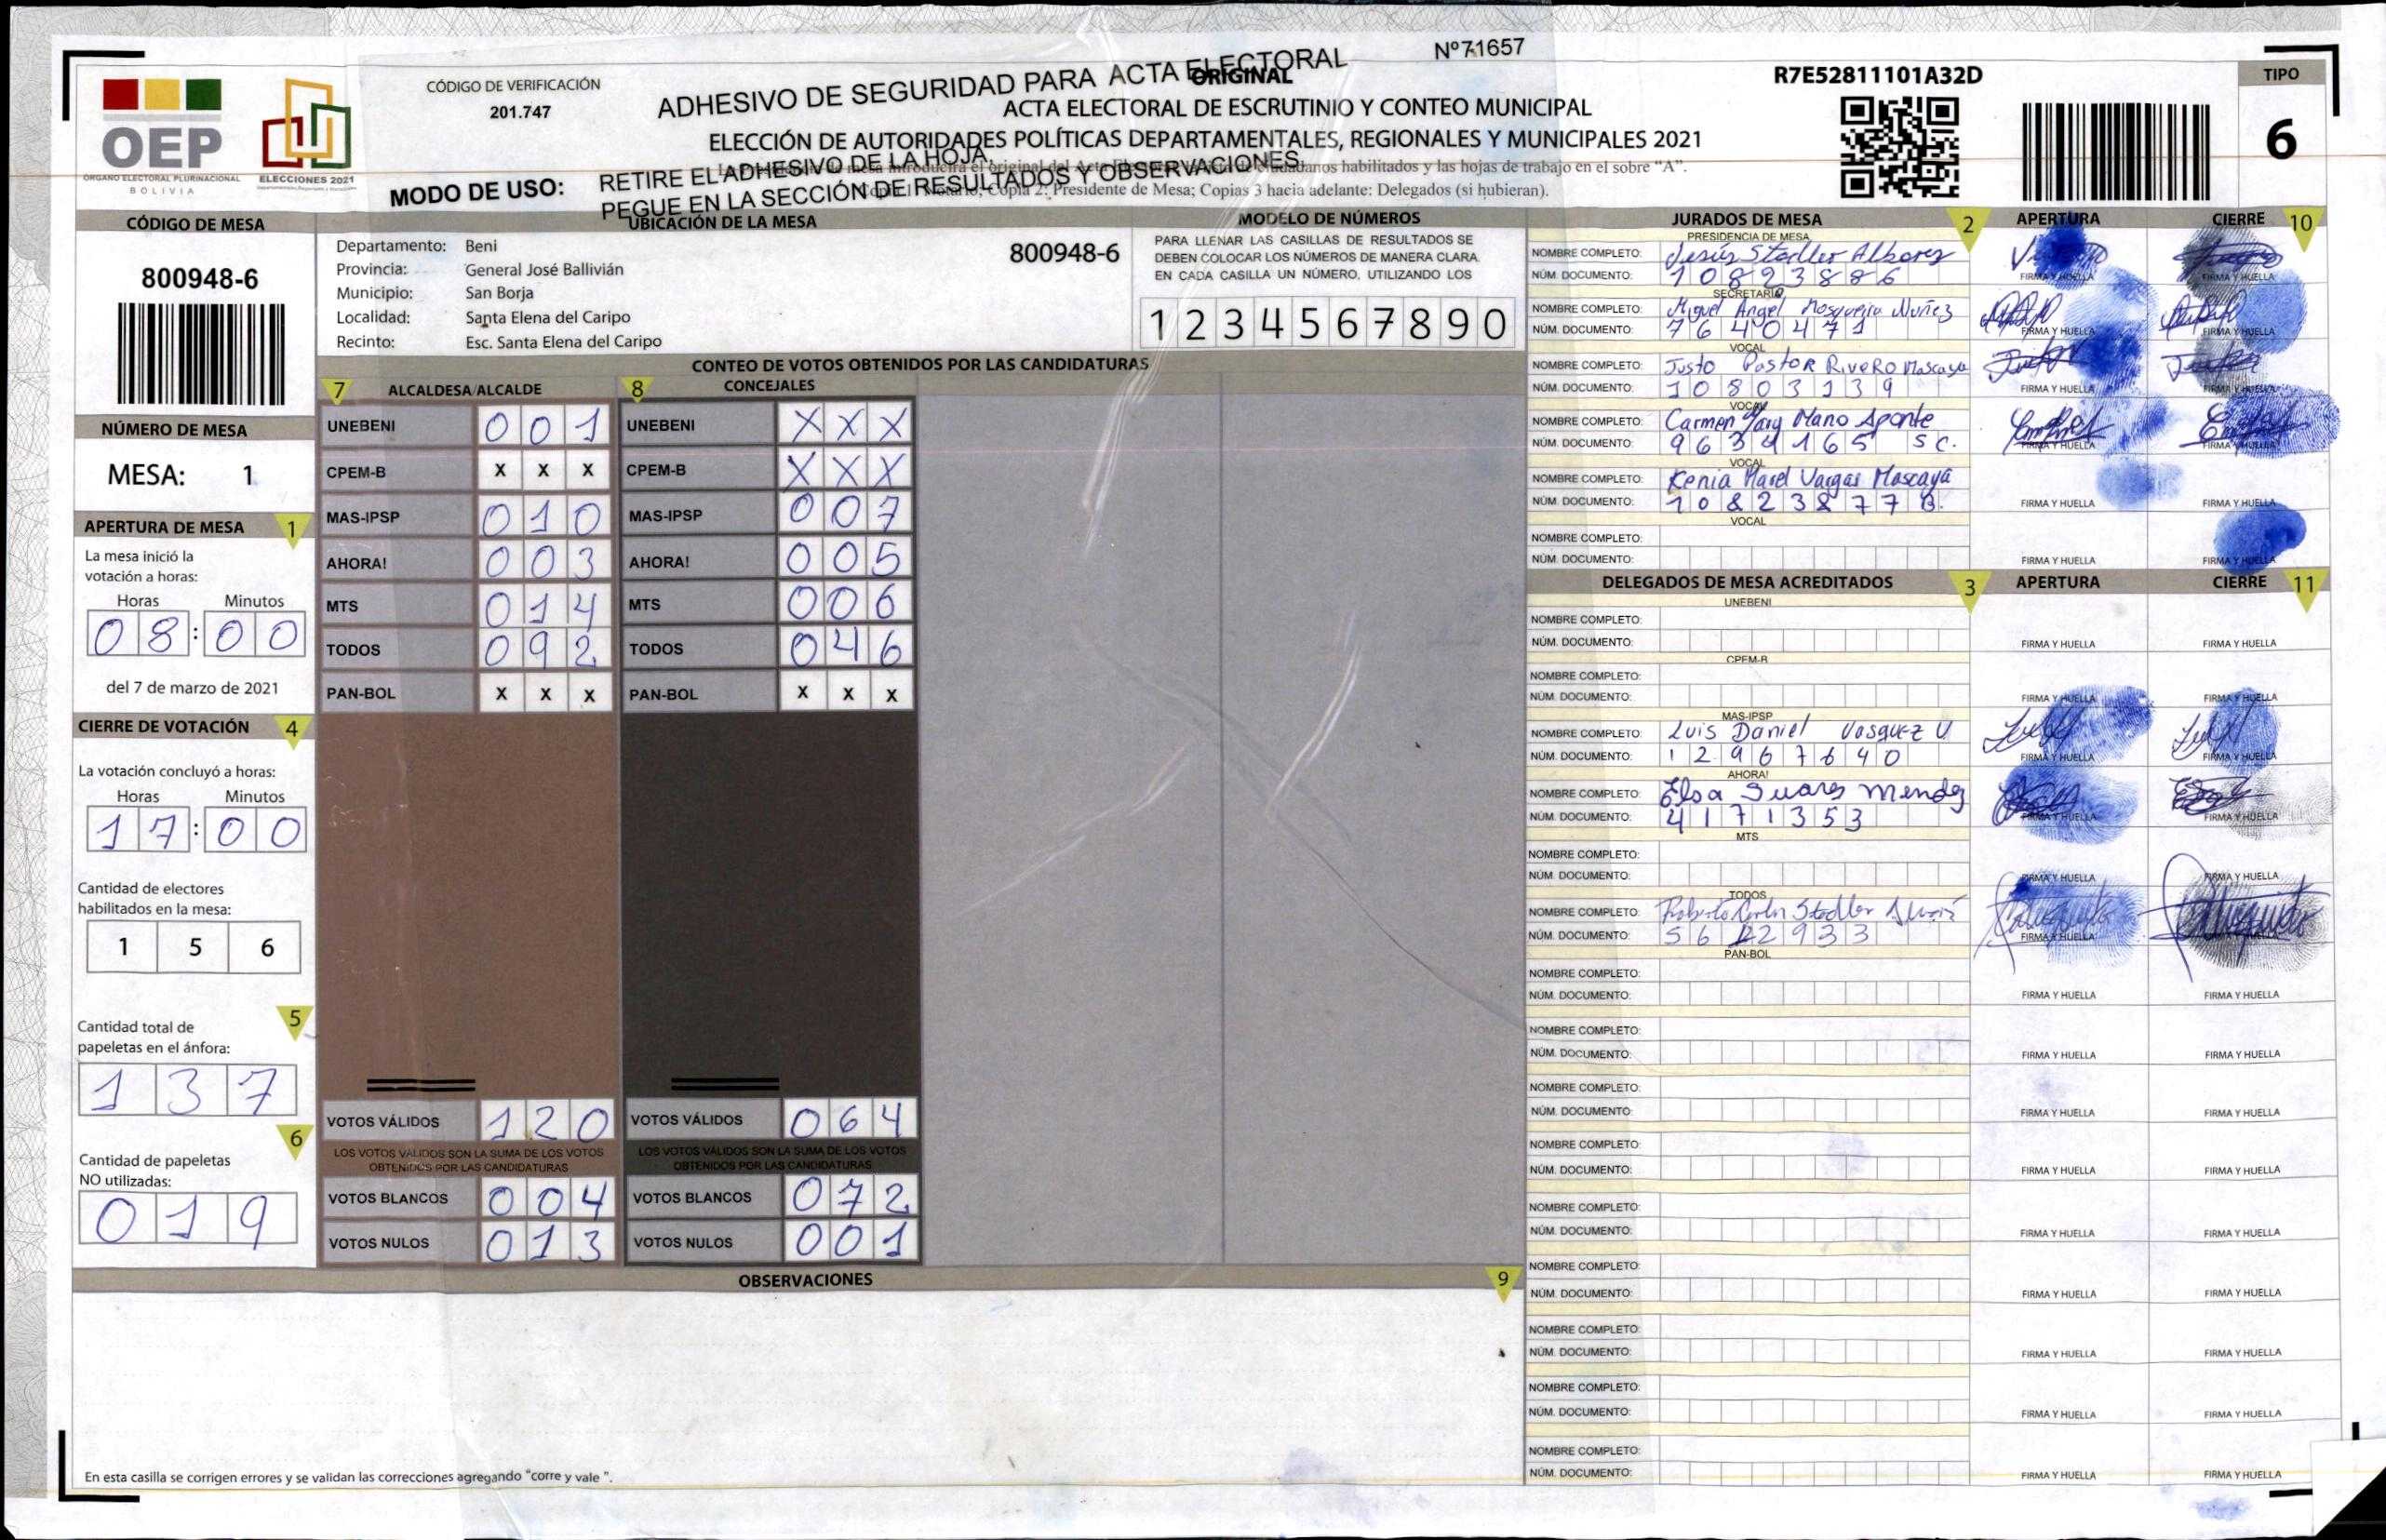 OEP
ÓRGANO ELECTORAL PLURINACIONAL
BOLIVIA
ELECCIONES 2021
CÓDIGO DE VERIFICACIÓN
201.747
ADHESIVO DE SEGURIDAD PARA ACTA ELECTORAL
Nº71657
ORIGINAL
ACTA ELECTORAL DE ESCRUTINIO Y CONTEO MUNICIPAL
ELECCIÓN DE AUTORIDADES POLÍTICAS DEPARTAMENTALES, REGIONALES Y MUNICIPALES 2021
MODO DE USO:
RETIRE EL ADHESIVO DE LA HOJA,
PEGUE EN LA SECCIÓN DE RESULTADOS Y OBSERVACIONES.
original del Acta habilitados y las hojas de trabajo en el sobre “A”.
Copia 2: Presidente de Mesa; Copias 3 hacia adelante: Delegados (si hubieran).
R7E52811101A32D
TIPO
6
CÓDIGO DE MESA
800948-6
NÚMERO DE MESA
MESA: 1
APERTURA DE MESA 1
La mesa inició la
votación a horas:
Horas Minutos
08:00
del 7 de marzo de 2021
CIERRE DE VOTACIÓN 4
La votación concluyó a horas:
Horas Minutos
17:00
Cantidad de electores
habilitados en la mesa:
1 5 6
5
Cantidad total de
papeletas en el ánfora:
1 3 7
6
Cantidad de papeletas
NO utilizadas:
0 1 9
UBICACIÓN DE LA MESA
Departamento: Beni
800948-6
Provincia: General José Ballivián
Municipio: San Borja
Localidad: Santa Elena del Caripo
Recinto: Esc. Santa Elena del Caripo
MODELO DE NÚMEROS
PARA LLENAR LAS CASILLAS DE RESULTADOS SE
DEBEN COLOCAR LOS NÚMEROS DE MANERA CLARA.
EN CADA CASILLA UN NÚMERO, UTILIZANDO LOS
1 2 3 4 5 6 7 8 9 0
CONTEO DE VOTOS OBTENIDOS POR LAS CANDIDATURAS
7 ALCALDESA/ALCALDE 8 CONCEJALES
UNEBENI 0 0 1 UNEBENI X X X
CPEM-B X X X CPEM-B X X X
MAS-IPSP 0 1 0 MAS-IPSP 0 0 7
AHORA! 0 0 3 AHORA! 0 0 5
MTS 0 1 4 MTS 0 0 6
TODOS 0 9 2 TODOS 0 4 6
PAN-BOL X X X PAN-BOL X X X
VOTOS VÁLIDOS 1 2 0 VOTOS VÁLIDOS 0 6 4
LOS VOTOS VÁLIDOS SON LA SUMA DE LOS VOTOS LOS VOTOS VÁLIDOS SON LA SUMA DE LOS VOTOS
OBTENIDOS POR LAS CANDIDATURAS OBTENIDOS POR LAS CANDIDATURAS
VOTOS BLANCOS 0 0 4 VOTOS BLANCOS 0 7 2
VOTOS NULOS 0 1 3 VOTOS NULOS 0 0 1
OBSERVACIONES 9
En esta casilla se corrigen errores y se validan las correcciones agregando “corre y vale ”.
JURADOS DE MESA 2 APERTURA CIERRE 10
PRESIDENCIA DE MESA
NOMBRE COMPLETO: Jesús Stedller
NÚM. DOCUMENTO: 10823886 FIRMA Y HUELLA FIRMA Y HUELLA
SECRETARIO
NOMBRE COMPLETO: Miguel Angel Mosqueira Nuñez
NÚM. DOCUMENTO: 7640471 FIRMA Y HUELLA FIRMA Y HUELLA
VOCAL
NOMBRE COMPLETO: Justo Pastor RiveRo Mascaya
NÚM. DOCUMENTO: 10803139 FIRMA Y HUELLA FIRMA Y HUELLA
VOCAL
NOMBRE COMPLETO: Carmen Mano Aponte
NÚM. DOCUMENTO: 9634165 SC. FIRMA Y HUELLA FIRMA Y HUELLA
VOCAL
NOMBRE COMPLETO: Kenia Marel Vargas Mascaya
NÚM. DOCUMENTO: 10823877 B. FIRMA Y HUELLA FIRMA Y HUELLA
VOCAL
NOMBRE COMPLETO:
NÚM. DOCUMENTO: FIRMA Y HUELLA FIRMA Y HUELLA
DELEGADOS DE MESA ACREDITADOS 3 APERTURA CIERRE 11
UNEBENI
NOMBRE COMPLETO:
NÚM. DOCUMENTO: FIRMA Y HUELLA FIRMA Y HUELLA
CPEM-B
NOMBRE COMPLETO:
NÚM. DOCUMENTO: FIRMA Y HUELLA FIRMA Y HUELLA
MAS-IPSP
NOMBRE COMPLETO: Luis Daniel Vasquez V
NÚM. DOCUMENTO: 12967640 FIRMA Y HUELLA FIRMA Y HUELLA
AHORA!
NOMBRE COMPLETO: Elsa Suares mendez
NÚM. DOCUMENTO: 4171353 FIRMA Y HUELLA FIRMA Y HUELLA
MTS
NOMBRE COMPLETO:
NÚM. DOCUMENTO: FIRMA Y HUELLA FIRMA Y HUELLA
TODOS
NOMBRE COMPLETO: Roberto Carlos Stedller
NÚM. DOCUMENTO: 5622933 FIRMA Y HUELLA
PAN-BOL
NOMBRE COMPLETO:
NÚM. DOCUMENTO: FIRMA Y HUELLA FIRMA Y HUELLA
NOMBRE COMPLETO:
NÚM. DOCUMENTO: FIRMA Y HUELLA FIRMA Y HUELLA
NOMBRE COMPLETO:
NÚM. DOCUMENTO: FIRMA Y HUELLA FIRMA Y HUELLA
NOMBRE COMPLETO:
NÚM. DOCUMENTO: FIRMA Y HUELLA FIRMA Y HUELLA
NOMBRE COMPLETO:
NÚM. DOCUMENTO: FIRMA Y HUELLA FIRMA Y HUELLA
NOMBRE COMPLETO:
NÚM. DOCUMENTO: FIRMA Y HUELLA FIRMA Y HUELLA
NOMBRE COMPLETO:
NÚM. DOCUMENTO: FIRMA Y HUELLA FIRMA Y HUELLA
NOMBRE COMPLETO:
NÚM. DOCUMENTO: FIRMA Y HUELLA FIRMA Y HUELLA
NOMBRE COMPLETO:
NÚM. DOCUMENTO: FIRMA Y HUELLA FIRMA Y HUELLA